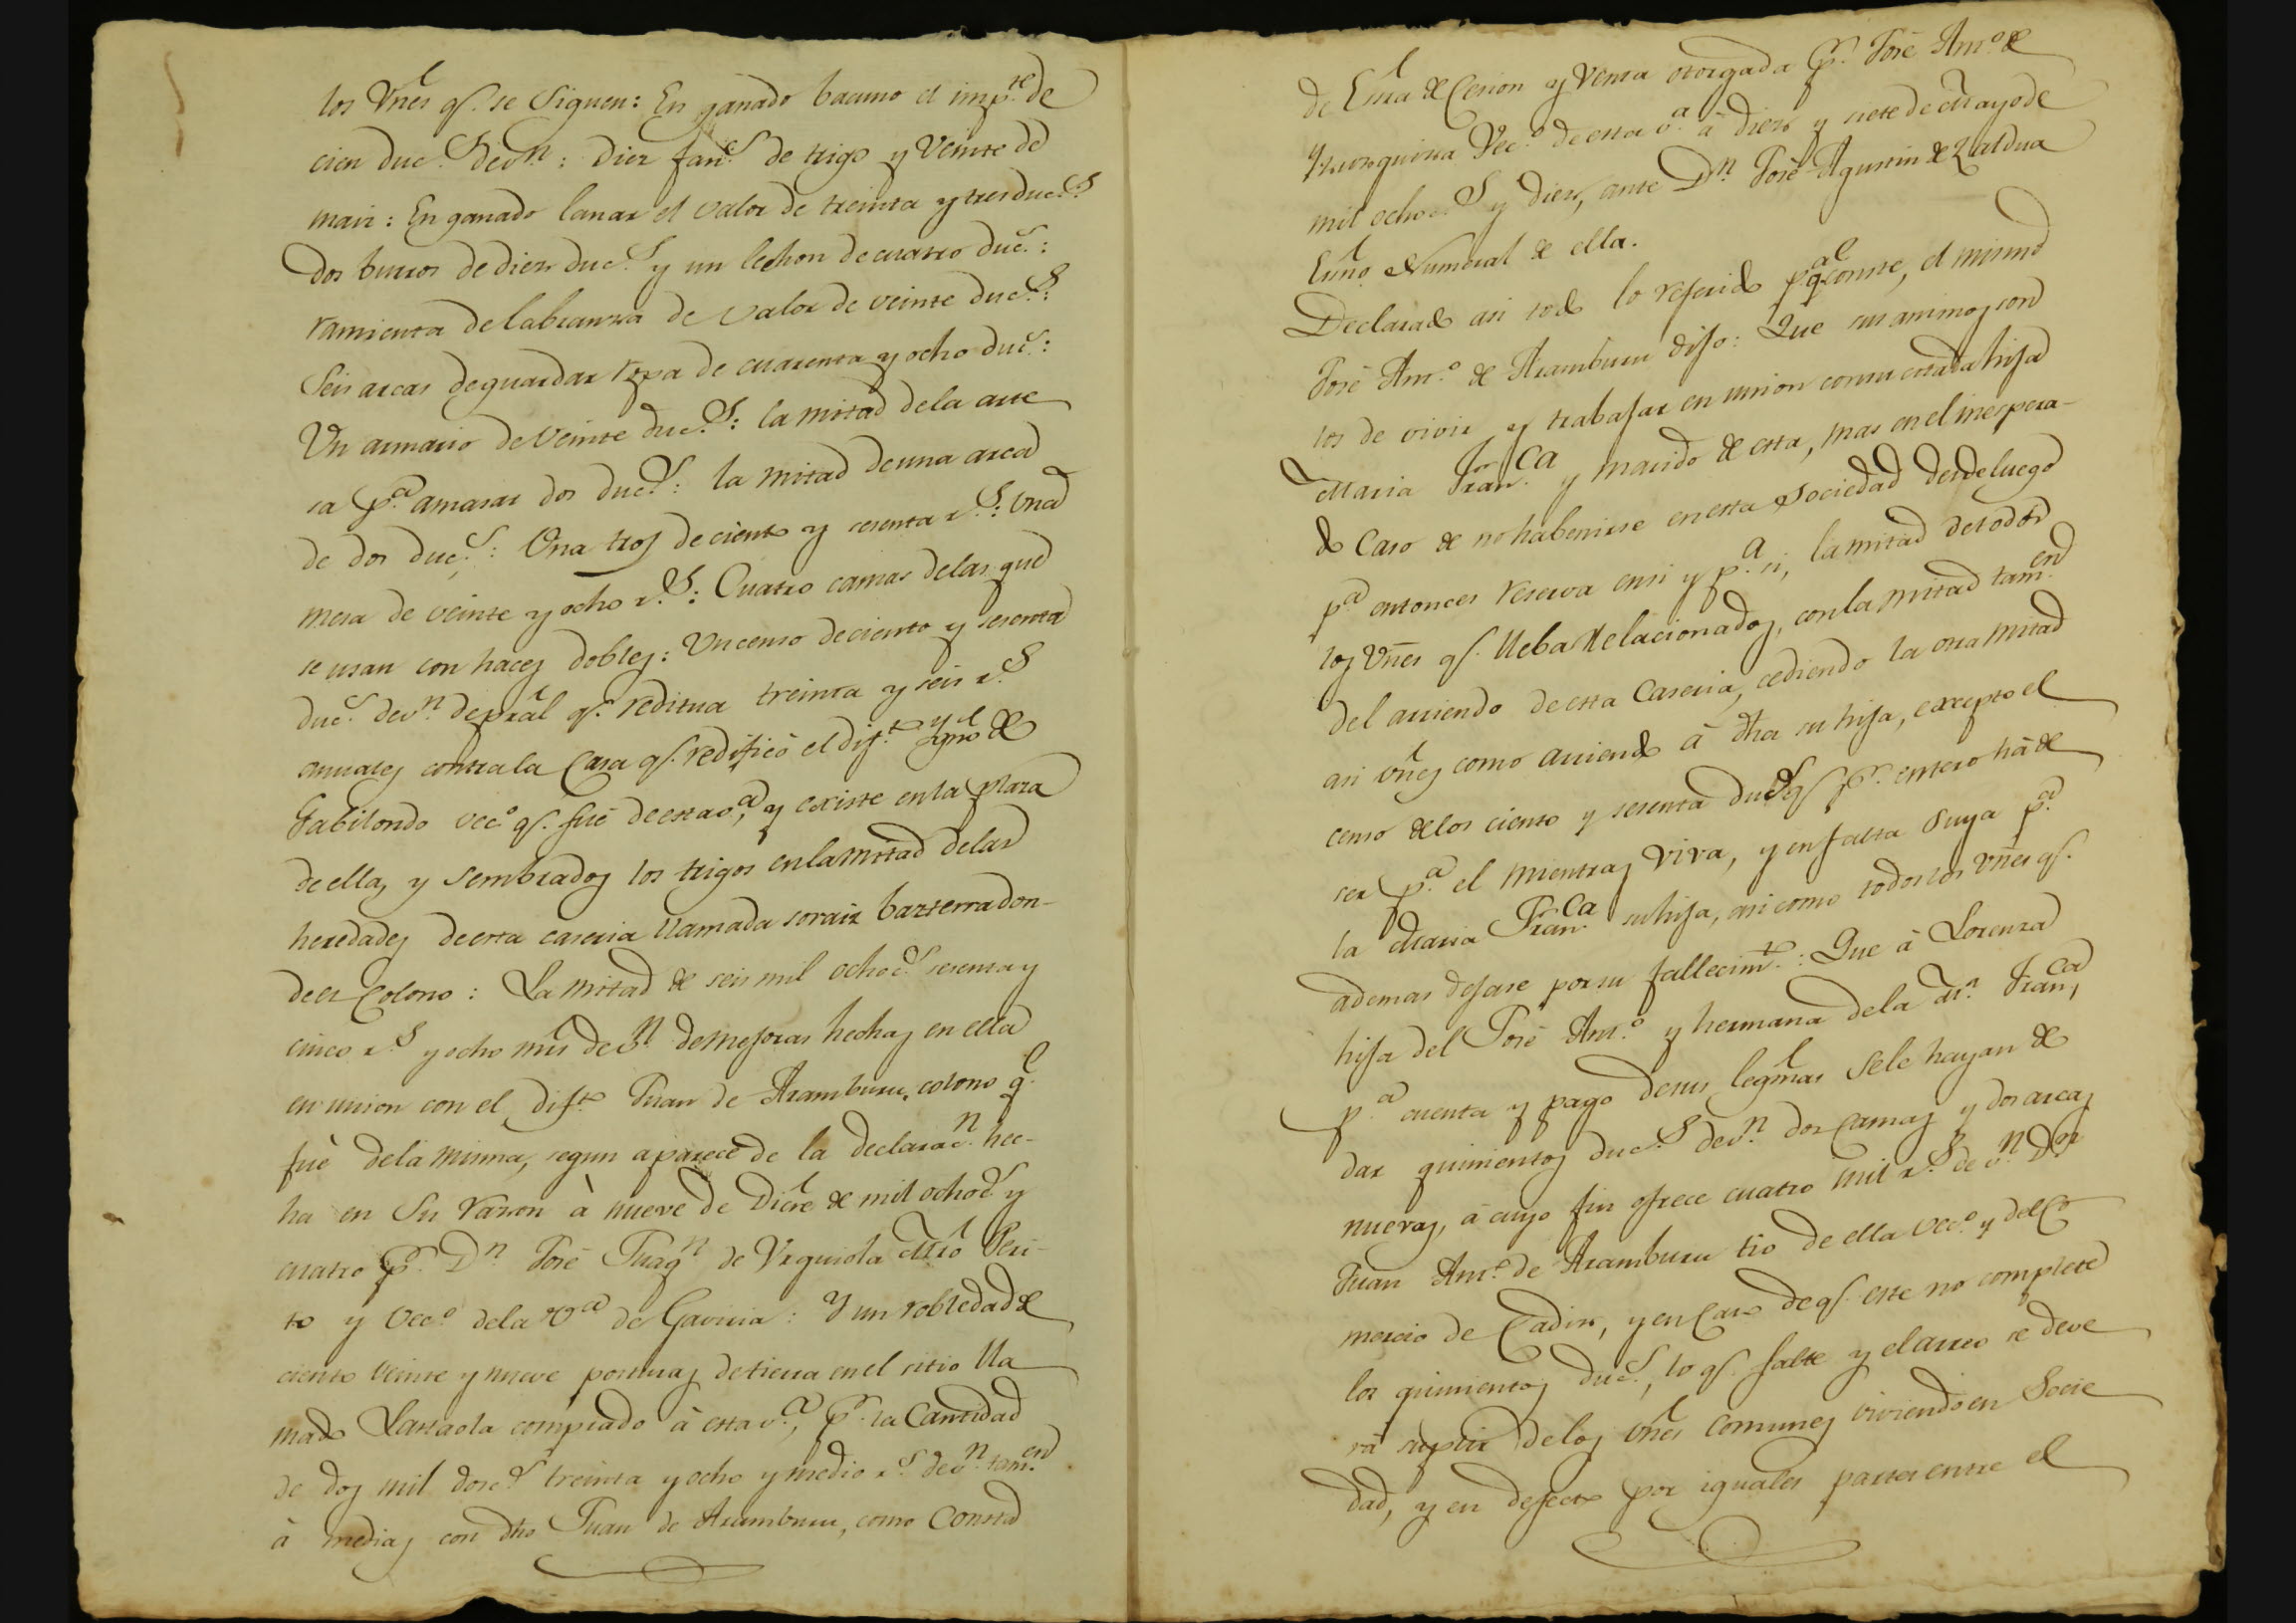 los Vnēs qe. se Siguen: En ganado bacuno el impte. de
cien ducs. de vn.: diez fans. de trigo y Veinte de
maiz: En ganado lanar el valor de treinta y tres ducs.
Dos burros de diez ducs. y un lechon de cuatro ducs.:
ramienta de labranza de valor de veinte ducs.:
Seis arcas de guardar ropa de cuarenta y ocho ducs.:
Un armario de Veinte ducs.: la mitad de la arte
sa pa. amasar dos ducs.: la mitad de una arca
de dos ducs.: Una troj de ciento y sesenta rs.: Una
mesa de veinte y ocho rs.: Cuatro camas de las que
se usan con haces dobles: Un censo de ciento y sesenta
ducs. de vn. de pral qe. reditua treinta y seis rs.
anuales contra la Casa qe. redificó el difto. Ygno de
Gabilondo veco. qe. fué de esta va., y existe en la plaza
de ella, y sembrados los trigos en la mitad de las
heredades de esta caseria llamada soraiz bazterra don-
de es Colono: La mitad de seis mil ochocs. sesenta y
cinco rs. y ocho mrs de vn. de mejoras hechas en ella
en union con el difto. Juan de Aramburu, colono qe.
fué de la misma, segun aparece de la declaracn. hec-
ha en Su razon à nueve de Dicre de mil ochocs. y
cuatro pr. Dn. José Juaqn. de Urquiola Mro Peri-
to y Veco. de la Va. de Gaviria: Y un robledad de
ciento veinte y nueve posturas de tierra en el sitio lla
mado Lastaola comprado à esta va., pr. la Cantidad
de dos mil doscs. treinta y ocho y medio rs. de vn. tamen.
à medias con dho Juan de Aramburu, como Consta
de Esrra de Cesion y Venta otorgada pr. José Anto. de
Yzurquiza Veco. de esta va. à diez y siete de Mayo de
mil ochocs. y diez, ante Dn. José Agustin de Zaldua
Esno. Numeral de ella.
Declarado asi todo lo referido pa. qe. conste, el mismo
José Anto. de Aramburu dijo: Que sus animos son
los de vivir y trabajar en union con su citada hija
Maria Franca. y marido de esta, mas en el inespera-
do Caso de no habenirse en esta Sociedad desde luego
pa. entonces reserva en si y pa. si, la mitad de todos
los Vnēs qe. lleba Relacionados, con la mitad tamen.
del arriendo de esta Caseria, cediendo la otra mitad
asi vnēs como arriendo à dha su hija, excepto el
censo de los ciento y sesenta ducs. qe. pr. entero hà de
ser pa. el mientras viva, y en falta Suya pa.
la Maria Franca. su hija, asi como todos los Vnēs qe.
ademas dejare por su fallecimto.: Que à Lorenza
hija del José Anto. y hermana de la Ma. Franca,
pa. cuenta y pago de sus legmas Se le hayan de
dar quinientos ducs. de vn. dos Camas y dos arcas
nuevas, à cuyo fin ofrece cuatro mil rs. de vn. Dn.
Juan Anto. de Aramburu tio de ella veco. y del Co
mercio de Cadiz, y en Caso de qe. este no complete
los quinientos ducs., lo qe. falte y el arreo se deve
rà suplir de los vnēs comunes viviendo en Socie
dad, y en defecto por iguales partes entre el